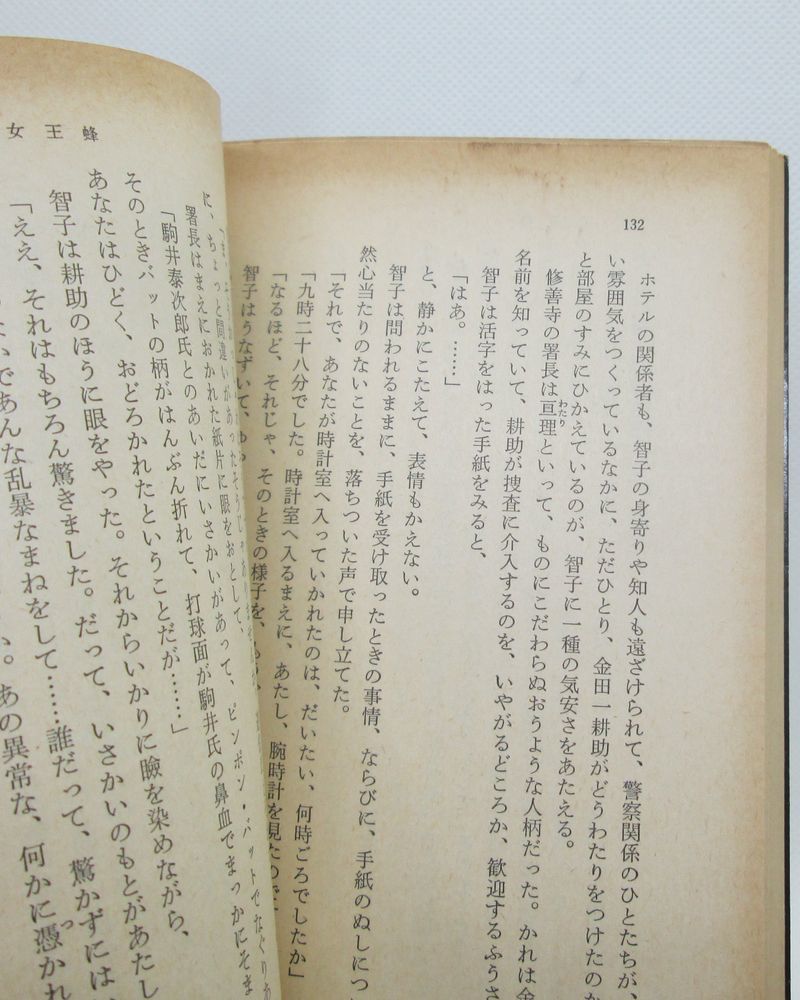 132
ホテルの関係者も、智子の身寄りや知人も遠ざけられて、警察関係のひとたちが、
い雰囲気をつくっているなかに、ただひとり、金田一耕助がどうわたりをつけたのか
と部屋のすみにひかえているのが、智子に一種の気安さをあたえる。
修善寺の署長は亘理といって、ものにこだわらぬおうような人柄だった。かれは金
わたり
名前を知っていて、耕助が捜査に介入するのを、いやがるどころか、歓迎するふうさ
智子は活字をはった手紙をみると、
「はあ。……」
と、静かにこたえて、表情もかえない。
智子は問われるままに、手紙を受け取ったときの事情、ならびに、手紙のぬしにつ
然心当たりのないことを、落ちついた声で申し立てた。
「それで、あなたが時計室へ入っていかれたのは、だいたい、何時ごろでしたか」
「九時二十八分でした。時計室へ入るまえに、あたし、腕時計を見たので
「なるほど、それじゃ、そのときの様子を、
智子はうなずいて、
女王蜂
に、ちょっと間違いがあった
署長はまえにおかれた紙片に眼をおとして、
「駒井泰次郎氏とのあいだにいさかいがあって、ピンポン・バットでなぐりあ
そのときバットの柄がはんぶん折れて、打球面が駒井氏の鼻血でまっかにそま
あなたはひどく、おどろかれたということだが……」
智子は耕助のほうに眼をやった。それからいかりに瞼を染めながら、
「ええ、それはもちろん驚きました。だって、いさかいのもとがあたし
であんな乱暴なまねをして……誰だって、驚かずには
。あの異常な、何かに憑かれ
っ